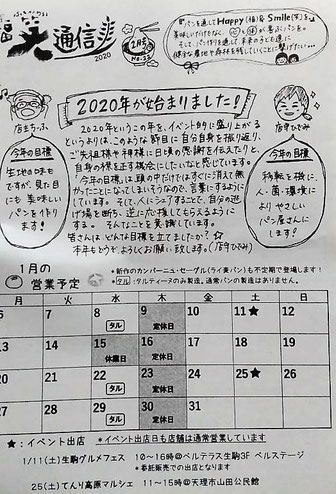 通信
2020
1月号
No.33
『パンを通じてHappy(福)&Smile(笑)を』
2020年が始まりました！
店主ちっぷ
店守ひでみ
今年の目標
生地の味も
ですが、見た目
にも美味しい
パンを作り
ます！
2020年というこの年を、イベント的に盛り上がる
というよりは、このような節目に自分自身を振り返り、
ご先祖様や神様に日頃の感謝をお伝えりと、
自身の襟を正す機会にしたいなと感じています。
今年の目標は、頭の中だけではすぐに消えて無
かったことになってしまいそうなので、言葉にするように
しています。そして、人にシェアすることで、自分の逃
げ場を断ち、逆に応援してもらえるように
する。そんなことを意識しています。
皆さんはどんな目標を立てましたか？☆
本年もどうぞ、よろしくお願い致します。(店守ひでみ)
今年の目標
移転を機に、
人・菌・環境に
よりやさしい
パン屋さん
にします！
1月の
営業予定
*新作のカンパーニュ・セーグル(ライ麦パン)も不定期で登場します！
*タル：タルティーヌのみ製造。通常パンの製造はありません。
月 火 水 木 金 土 日
6 7 8 9 10 11★ 12
タル 定休日
13 14 15 16 17 18 19
休業日 定休日
20 21 22 23 24 25★ 26
タル 定休日
27 28 29 30 31
タル 定休日
★：イベント出店 *イベント出店日も店舗は通常営業しています
1/11(土)生駒グルメフェス 10～16時＠ベルテラス生駒3F ベルステージ
*委託販売での出店となります
25(土)てんり高原マルシェ 11～15時＠天理市山田公民館